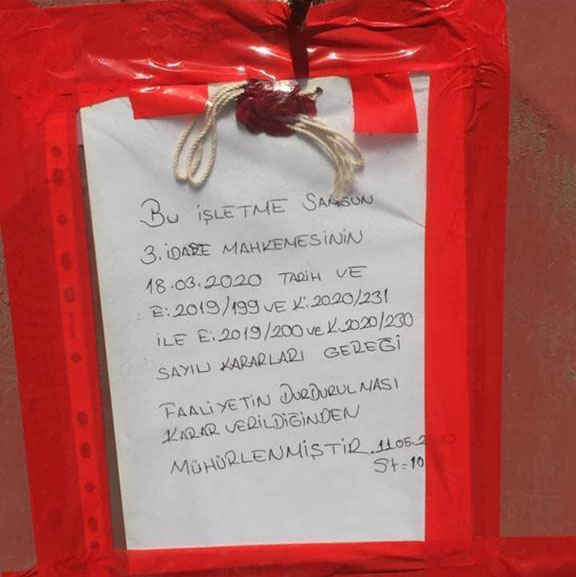 BU İŞLETME SAMSUN
3. İDARE MAHKEMESİNİN
18.03.2020 TARİH VE
E:2019/199 VE K:2020/231
İLE E:2019/200 ve K.2020/230
SAYILI KARARLARI GEREĞİ
FAALİYETİN DURDURULMASI
KARAR VERİLDİĞİNDEN
MÜHÜRLENMİŞTİR. 11.05.2
St=10